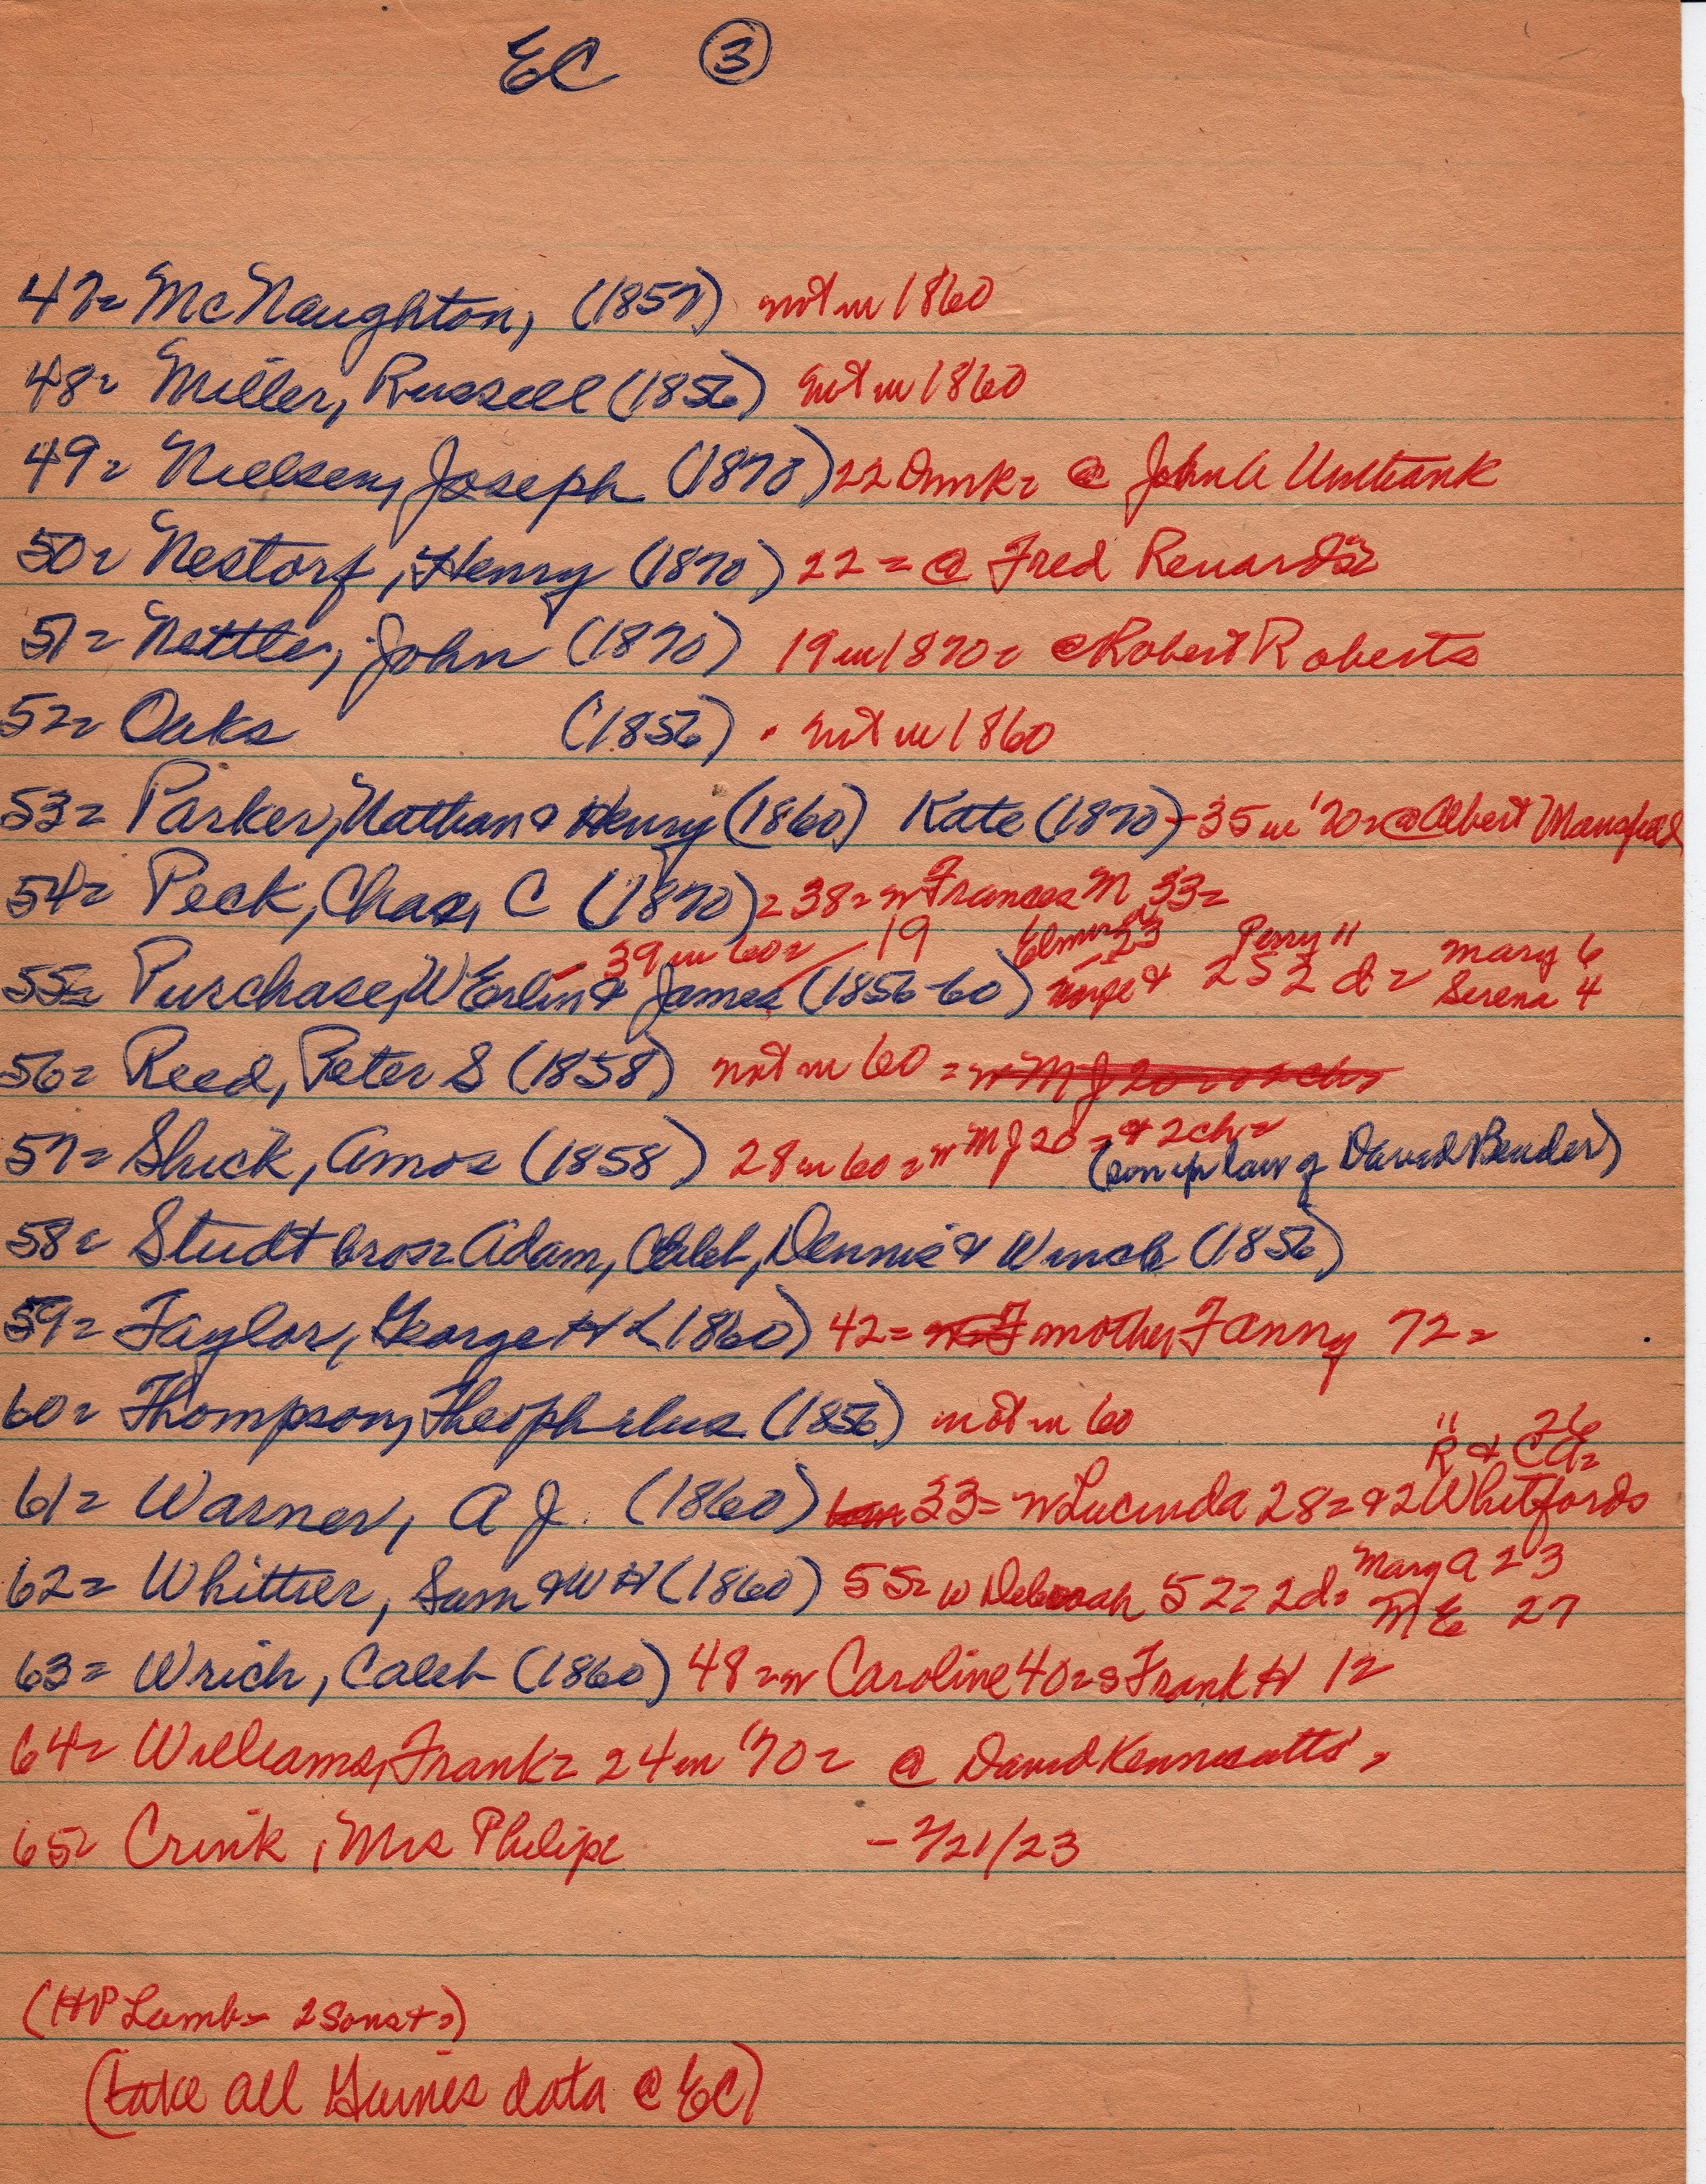 EC 3
47= McNaughton, (1857) not in 1860
48= Miller, Russell (1856) not in 1860
49= Nielsen, Joseph (1870) 22 Dmk= @ John A Unthank
50= Nestorf, Henry (1870) 22 = @ Fred Renards=
51= Nettler, John (1870) 19 in 1870= @ Robert Roberts
52= Oaks (1856) . not in 1860
53= Parker, Nathan & Henry (1860) Kate (1870) - 35 in '70= @ Albert Mansfield
54= Peck, Chas, C (1870) = 38= w Frances M 33=
39 in 60= 19 23 Perry 11 Mary 6
55= Purchase, W Erlin & James (1856-60) & 25 2 d = Serena 4
56= Reed, Peter S (1858) not in 60 = w M J 20 = & 2 ch=
57= Shick, Amos (1858) 28 in 60 = w M J 20 = & 2 ch= (son in law of David Bender)
58= Studt bros= Adam, Caleb, Dennis & Winch (1856)
59= Taylor, George H (1860) 42= mother Fanny 72=
60= Thompson, Theophilus (1856) not in 60
" 26
R & CA=
61= Warner, A J. (1860) 33= w Lucinda 28= & 2 Whitfords
62= Whittier, Sam & W H (1860) 55= w Deborah 52= 2d= Mary A 23
M E 27
63= Wrich, Caleb (1860) 48= w Caroline 40= s Frank H 12
64= Williams, Frank= 24 in '70= @ David Kennsatts' =
65= Crink, Mrs Philip= - 2/21/23
(HP Lamb= 2 sons + =)
(take all Gaines data @ EC)